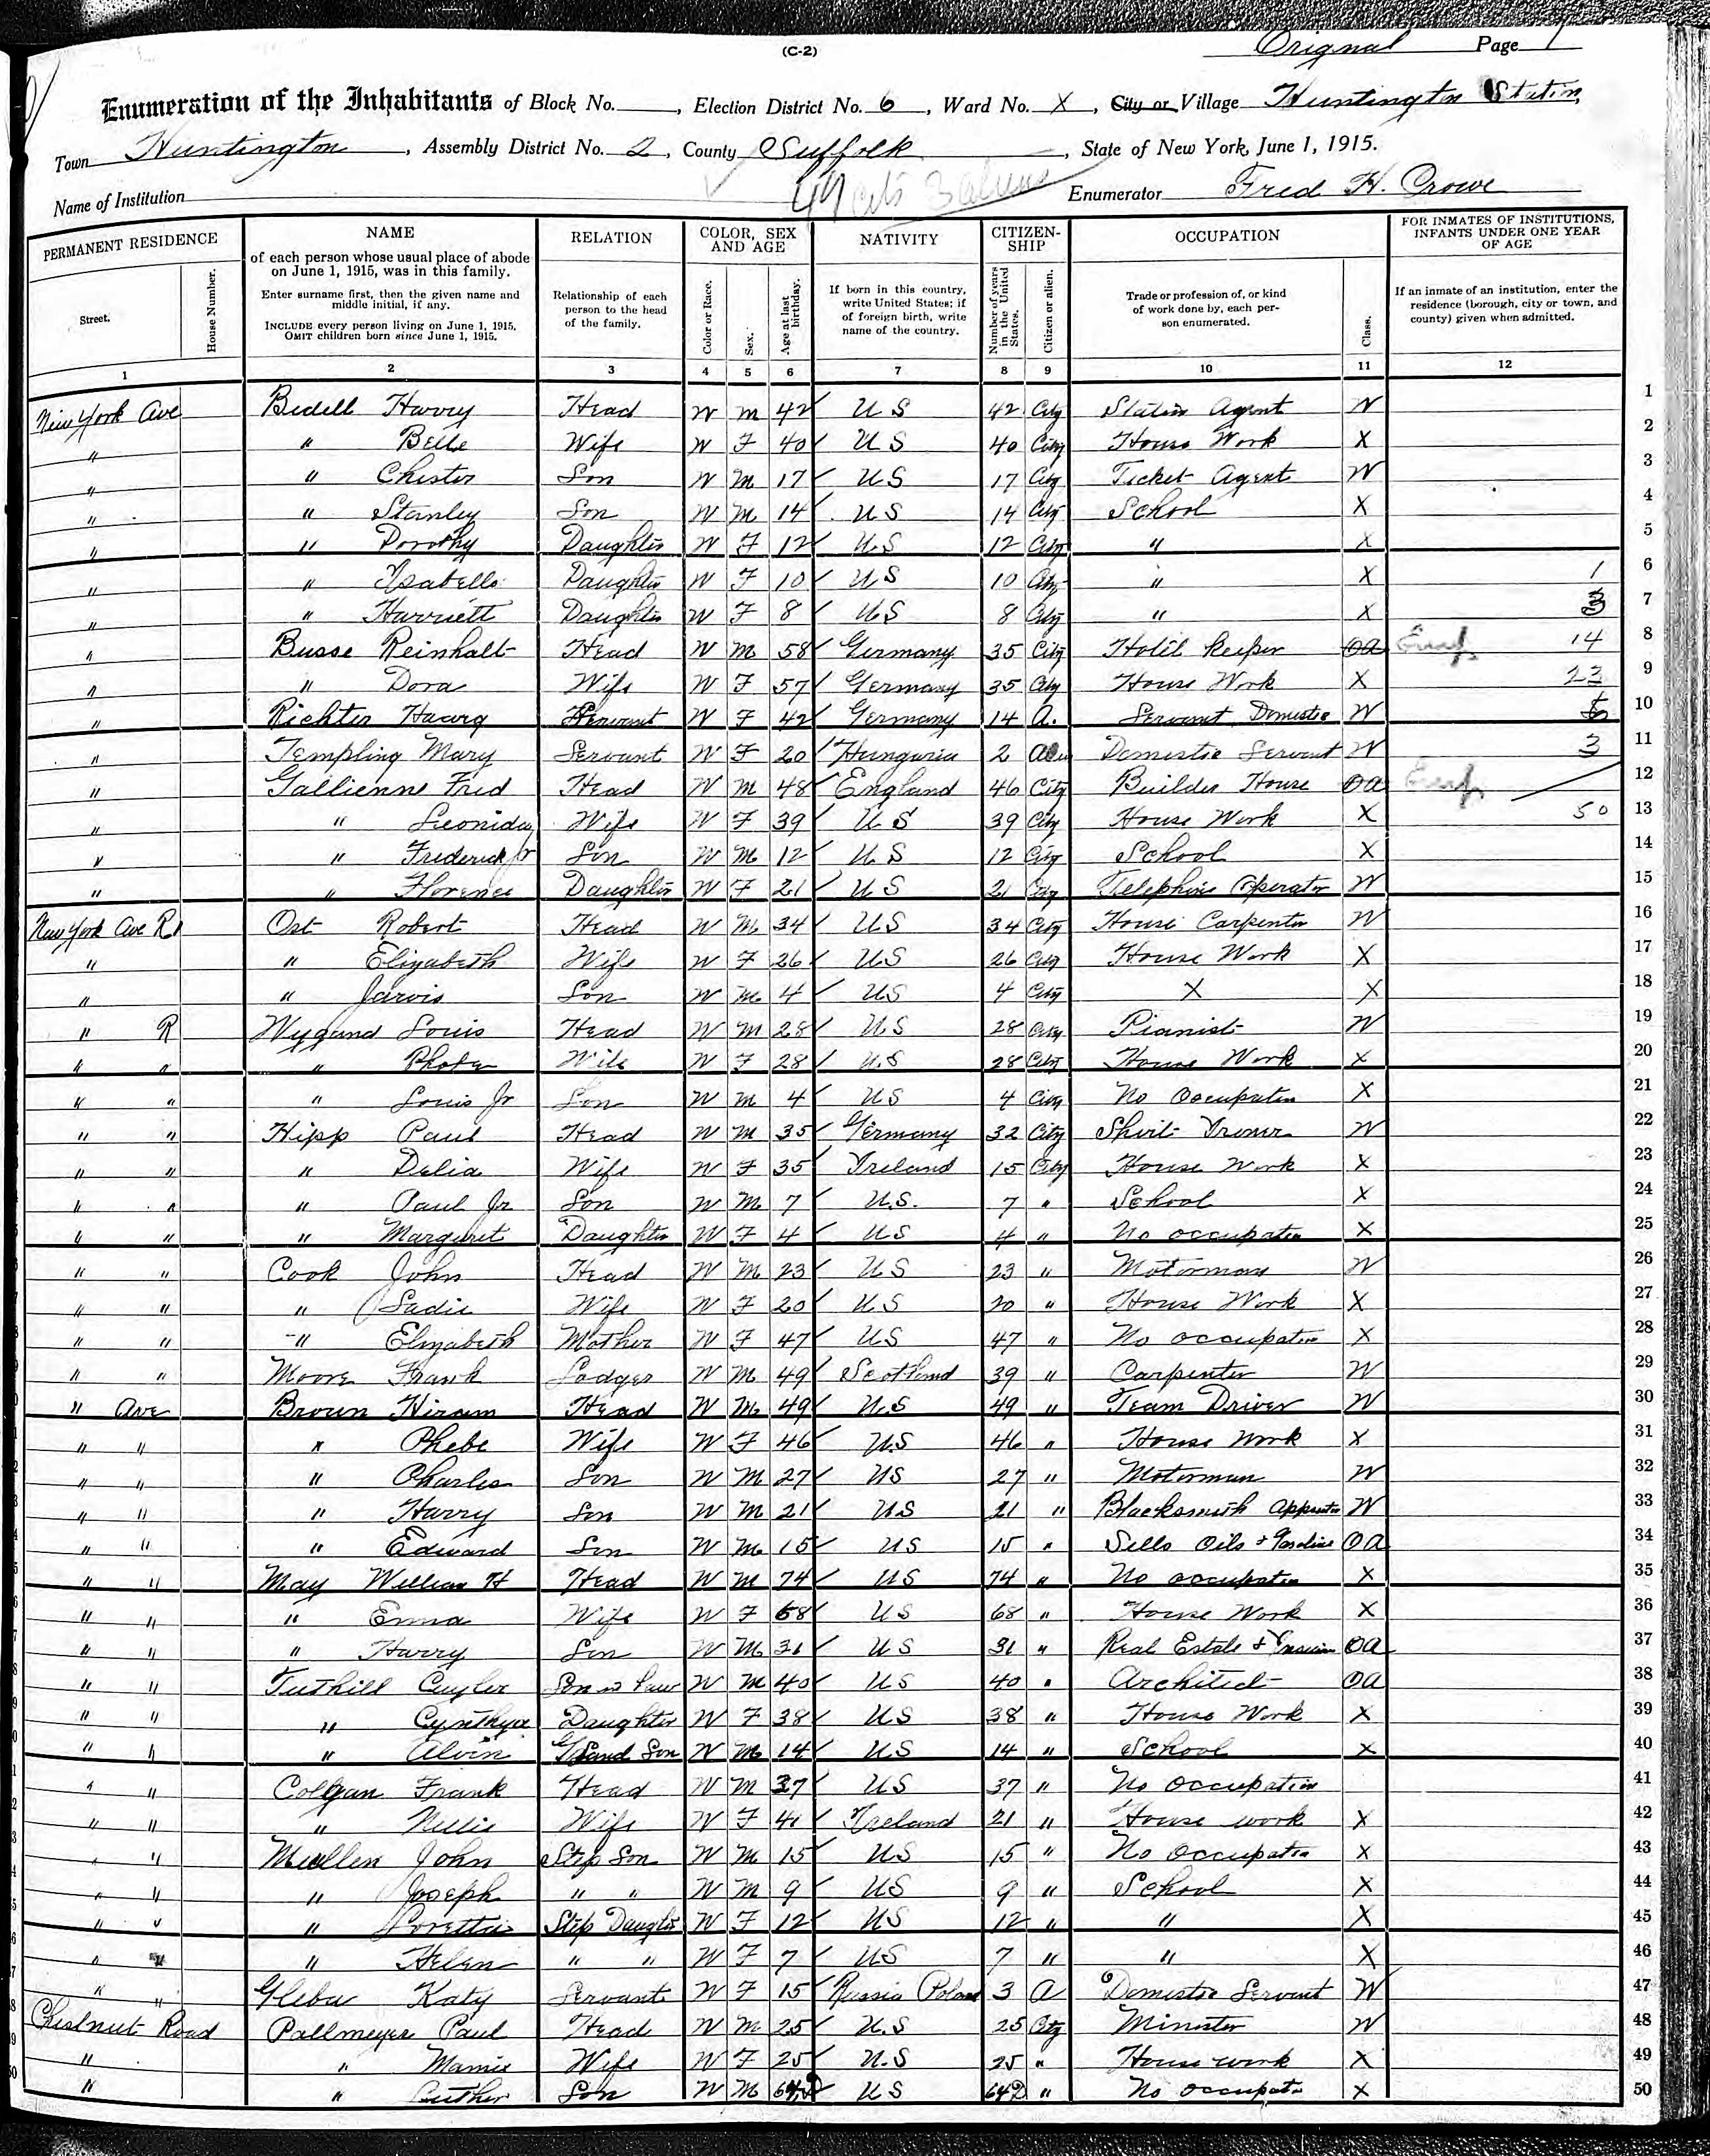 (C-2)
Orignal Page 1
Enumeration of the Inhabitants of Block No. , Election District No. 6 , Ward No. X , City or Village Huntington Station
Town Huntington , Assembly District No. 2 , County Suffolk , State of New York, June 1, 1915.
Name of Institution Enumerator Fred H. Crowe
PERMANENT RESIDENCE NAME of each person whose usual place of abode on June 1, 1915, was in this family. RELATION COLOR, SEX AND AGE NATIVITY CITIZENSHIP OCCUPATION FOR INMATES OF INSTITUTIONS, INFANTS UNDER ONE YEAR OF AGE
Street. House Number. Enter surname first, then the given name and middle initial, if any. INCLUDE every person living on June 1, 1915. OMIT children born since June 1, 1915. Relationship of each person to the head of the family. Color or Race. Sex. Age at last birthday. If born in this country, write United States; if of foreign birth, write name of the country. Number of years in the United States. Citizen or alien. Trade or profession of, or kind of work done by, each person enumerated. Class. If an inmate of an institution, enter the residence (borough, city or town, and county) given when admitted.
1 2 3 4 5 6 7 8 9 10 11 12
New York Ave Bedell Harry Head W M 42 U S 42 City Station Agent W 1
" " Belle Wife W F 40 U S 40 City House Work X 2
" " Chester Son W M 17 U S 17 City Ticket Agent W 3
" " Stanley Son W M 14 U S 14 City School X 4
" " Dorothy Daughter W F 12 U S 12 City " X 5
" " Isabelle Daughter W F 10 U S 10 City " X 1 6
" " Harriett Daughter W F 8 U S 8 City " X 3 7
" Busse Reinhalt Head W M 58 Germany 35 City Hotel Keeper OA 14 8
" " Dora Wife W F 57 Germany 35 City House Work X 9
" Richter Servant W F 42 Germany 14 A. Servant Domestic W 10
" Templing Mary Servant W F 20 Hungaria 2 Domestic Servant W 3 11
" Gallienne Fred Head W M 48 England 46 City Builder House OA 12
" " Leonida Wife W F 39 U S 39 City House Work X 50 13
" " Frederick Jr Son W M 12 U S 12 City School X 14
" " Florence Daughter W F 21 U S 21 City Telephone Operator W 15
New York Ave R Ost Robert Head W M 34 U S 34 City House Carpenter W 16
" " Elizabeth Wife W F 26 U S 26 City House Work X 17
" " Jarvis Son W M 4 U S 4 City X X 18
" R Wygand Louis Head W M 28 U S 28 City Pianist W 19
" " " Wife W F 28 U.S 28 City House Work X 20
" " " Louis Jr Son W M 4 U S 4 City No Occupation X 21
" " Hipp Paul Head W M 35 Germany 32 City W 22
" " " Delia Wife W F 35 Ireland 15 City House Work X 23
" " " Paul Jr Son W M 7 U.S. 7 " School X 24
" " " Margaret Daughter W F 4 U S 4 " No occupation X 25
" " Cook John Head W M 23 U S 23 " Motorman W 26
" " " Sadie Wife W F 20 U S 20 " House Work X 27
" " " Elizabeth Mother W F 47 U S 47 " No occupation X 28
" " Moore Frank Lodger W M 49 Scotland 39 " Carpenter W 29
" Ave Brown Hiram Head W M 49 U.S 49 " Team Driver W 30
" " " Phebe Wife W F 46 U.S 46 " House Work X 31
" " " Charles Son W M 27 U S 27 " Motorman W 32
" " " Harry Son W M 21 U S 21 " Blacksmith W 33
" " " Edward Son W M 15 U S 15 " Sells Oils & Gasoline OA 34
" " May William H Head W M 74 U S 74 " No occupation X 35
" " " Emma Wife W F 68 U S 68 " House Work X 36
" " " Harry Son W M 31 U S 31 " Real Estate & OA 37
" " Tuthill Cuyler Son in Law W M 40 U S 40 " Architect OA 38
" " " Cynthya Daughter W F 38 U S 38 " House Work X 39
" " " Alvin Grand Son W M 14 U S 14 " School X 40
" " Colgan Frank Head W M 37 U S 37 " No Occupation 41
" " " Nellie Wife W F 41 Ireland 21 " House work X 42
" " Mullen John Step Son W M 15 U S 15 " No Occupation X 43
" " " Joseph " " W M 9 U S 9 " School X 44
" " " Loretta Step Daughter W F 12 U S 12 " " X 45
" " " Helen " " W F 7 U S 7 " " X 46
" " Katy Servant W F 15 Russia Poland 3 A Domestic Servant W 47
Chestnut Road Pallmeyer Paul Head W M 25 U.S 25 City Minister W 48
" " Mamie Wife W F 25 U.S 25 " House work X 49
" " Luther Son W M U S " No occupation X 50